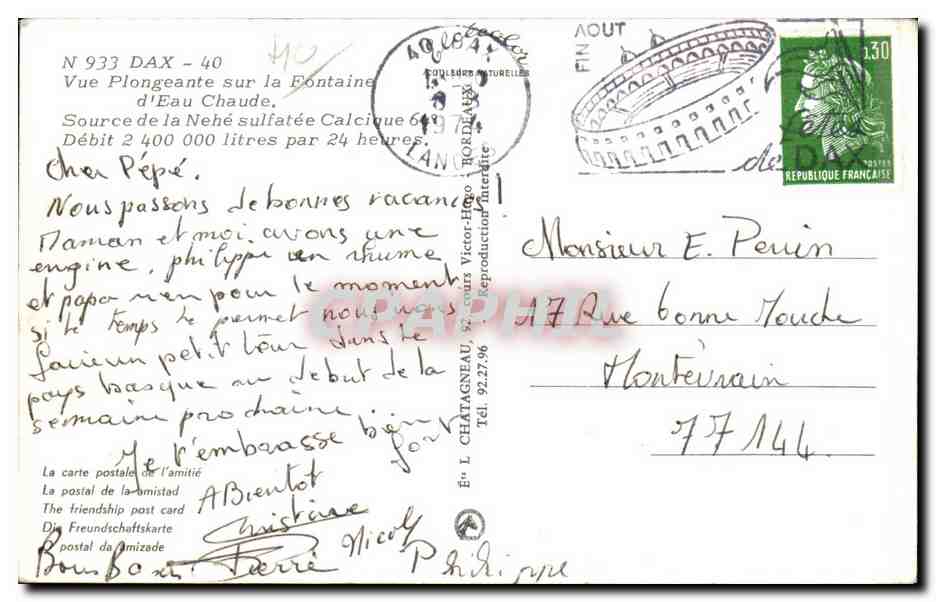 N 933 DAX - 40
Vue Plongeante sur la Fontaine
d'Eau Chaude.
Source de la Nehé sulfatée Calcique 64°
Débit 2 400 000 litres par 24 heures.
COULEURS NATURELLES
40 DAX
1974
LANDES
FIN AOUT
Fêtes
de DAX
0,30
POSTES
REPUBLIQUE FRANÇAISE
Cher Pépé.
Nous passons de bonnes vacances!
Maman et moi avons une
engine, philippe un rhume
et papa rien pour le moment
si le temps le permet nous irons
faire un petit tour dans le
pays basque au debut de la
semaine prochaine.
Je t'embrasse bien
fort
A Bientot
Christine
Bons Baisers Pierre Nicole Philippe
Monsieur E. Perrin
17 Rue bonne Mouche
Montévrain
77144.
La carte postale de l'amitié
La postal de la amistad
The friendship post card
Die Freundschaftskarte
postal da amizade
Éts L. CHATAGNEAU, 92, cours Victor-Hugo BORDEAUX
Tél. 92.27.96 Reproduction interdite
CPAPHIL